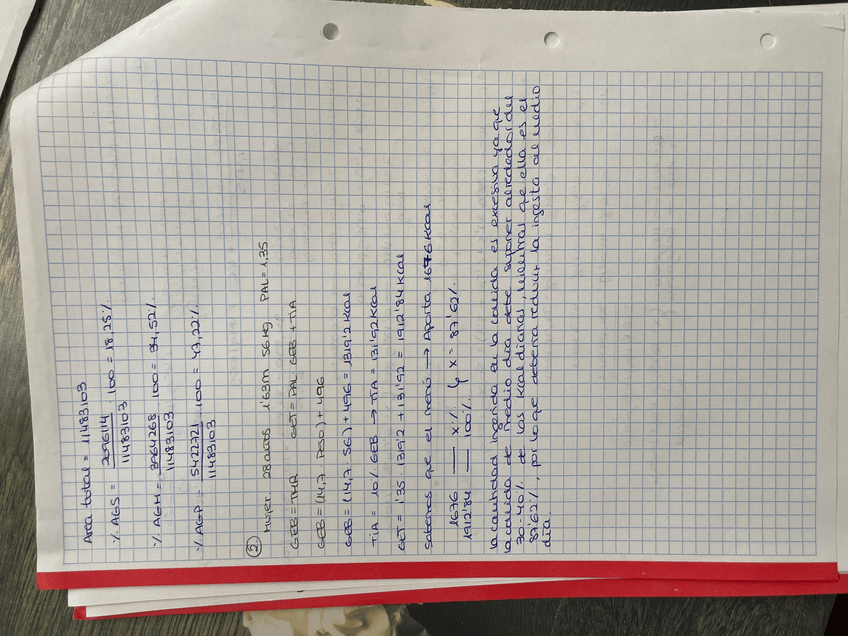 Area total = 11483103
% AGS = 2096114 / 11483103 · 100 = 18,25%
% AGM = 3964268 / 11483103 · 100 = 34,52%
% AGP = 5422721 / 11483103 · 100 = 47,22%
② Mujer 28 años 1'63m 56Kg PAL = 1,35
GEB = TMR GET = PAL · GEB + TIA
GEB = (14,7 · Peso) + 496
GEB = (14,7 · 56) + 496 = 1319'2 Kcal
TIA = 10% GEB → TIA = 131'92 Kcal
GET = 1'35 · 1319'2 + 131'92 = 1912'84 Kcal
Sabemos que el menú → Aporta 1676 Kcal
1676 — x%
1912'84 — 100% ↳ x = 87'62%
La cantidad ingerida en la comida es excesiva ya que
la comida de medio dia debe suponer alrededor del
30-40% de las Kcal diarias, mientras que ella es el
87'62%, por lo que debería reducir la ingesta al medio
dia.